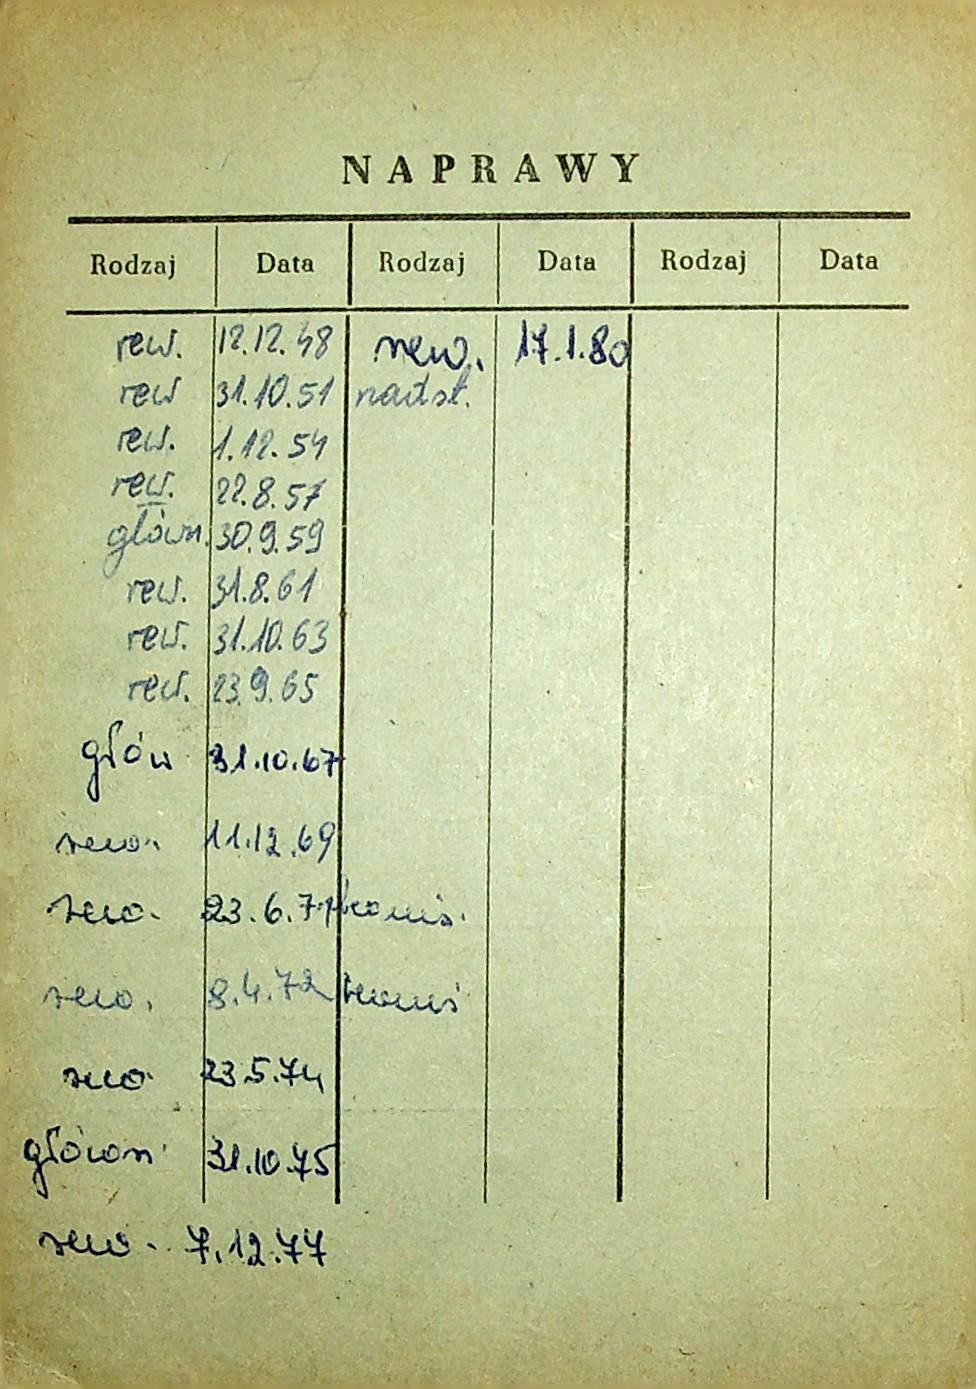 NAPRAWY
Rodzaj Data Rodzaj Data Rodzaj Data
rew. 12.12.48 rew. 17.1.80
rew 31.10.51 nadst.
rew. 1.12.54
rew. 22.8.57
główn. 30.9.59
rew. 31.8.61
rew. 31.10.63
rew. 23.9.65
głów 31.10.67
rew. 11.12.69
rew. 23.6.71
rew. 8.4.72
rew 23.5.74
główn 31.10.75
rew. 7.12.77